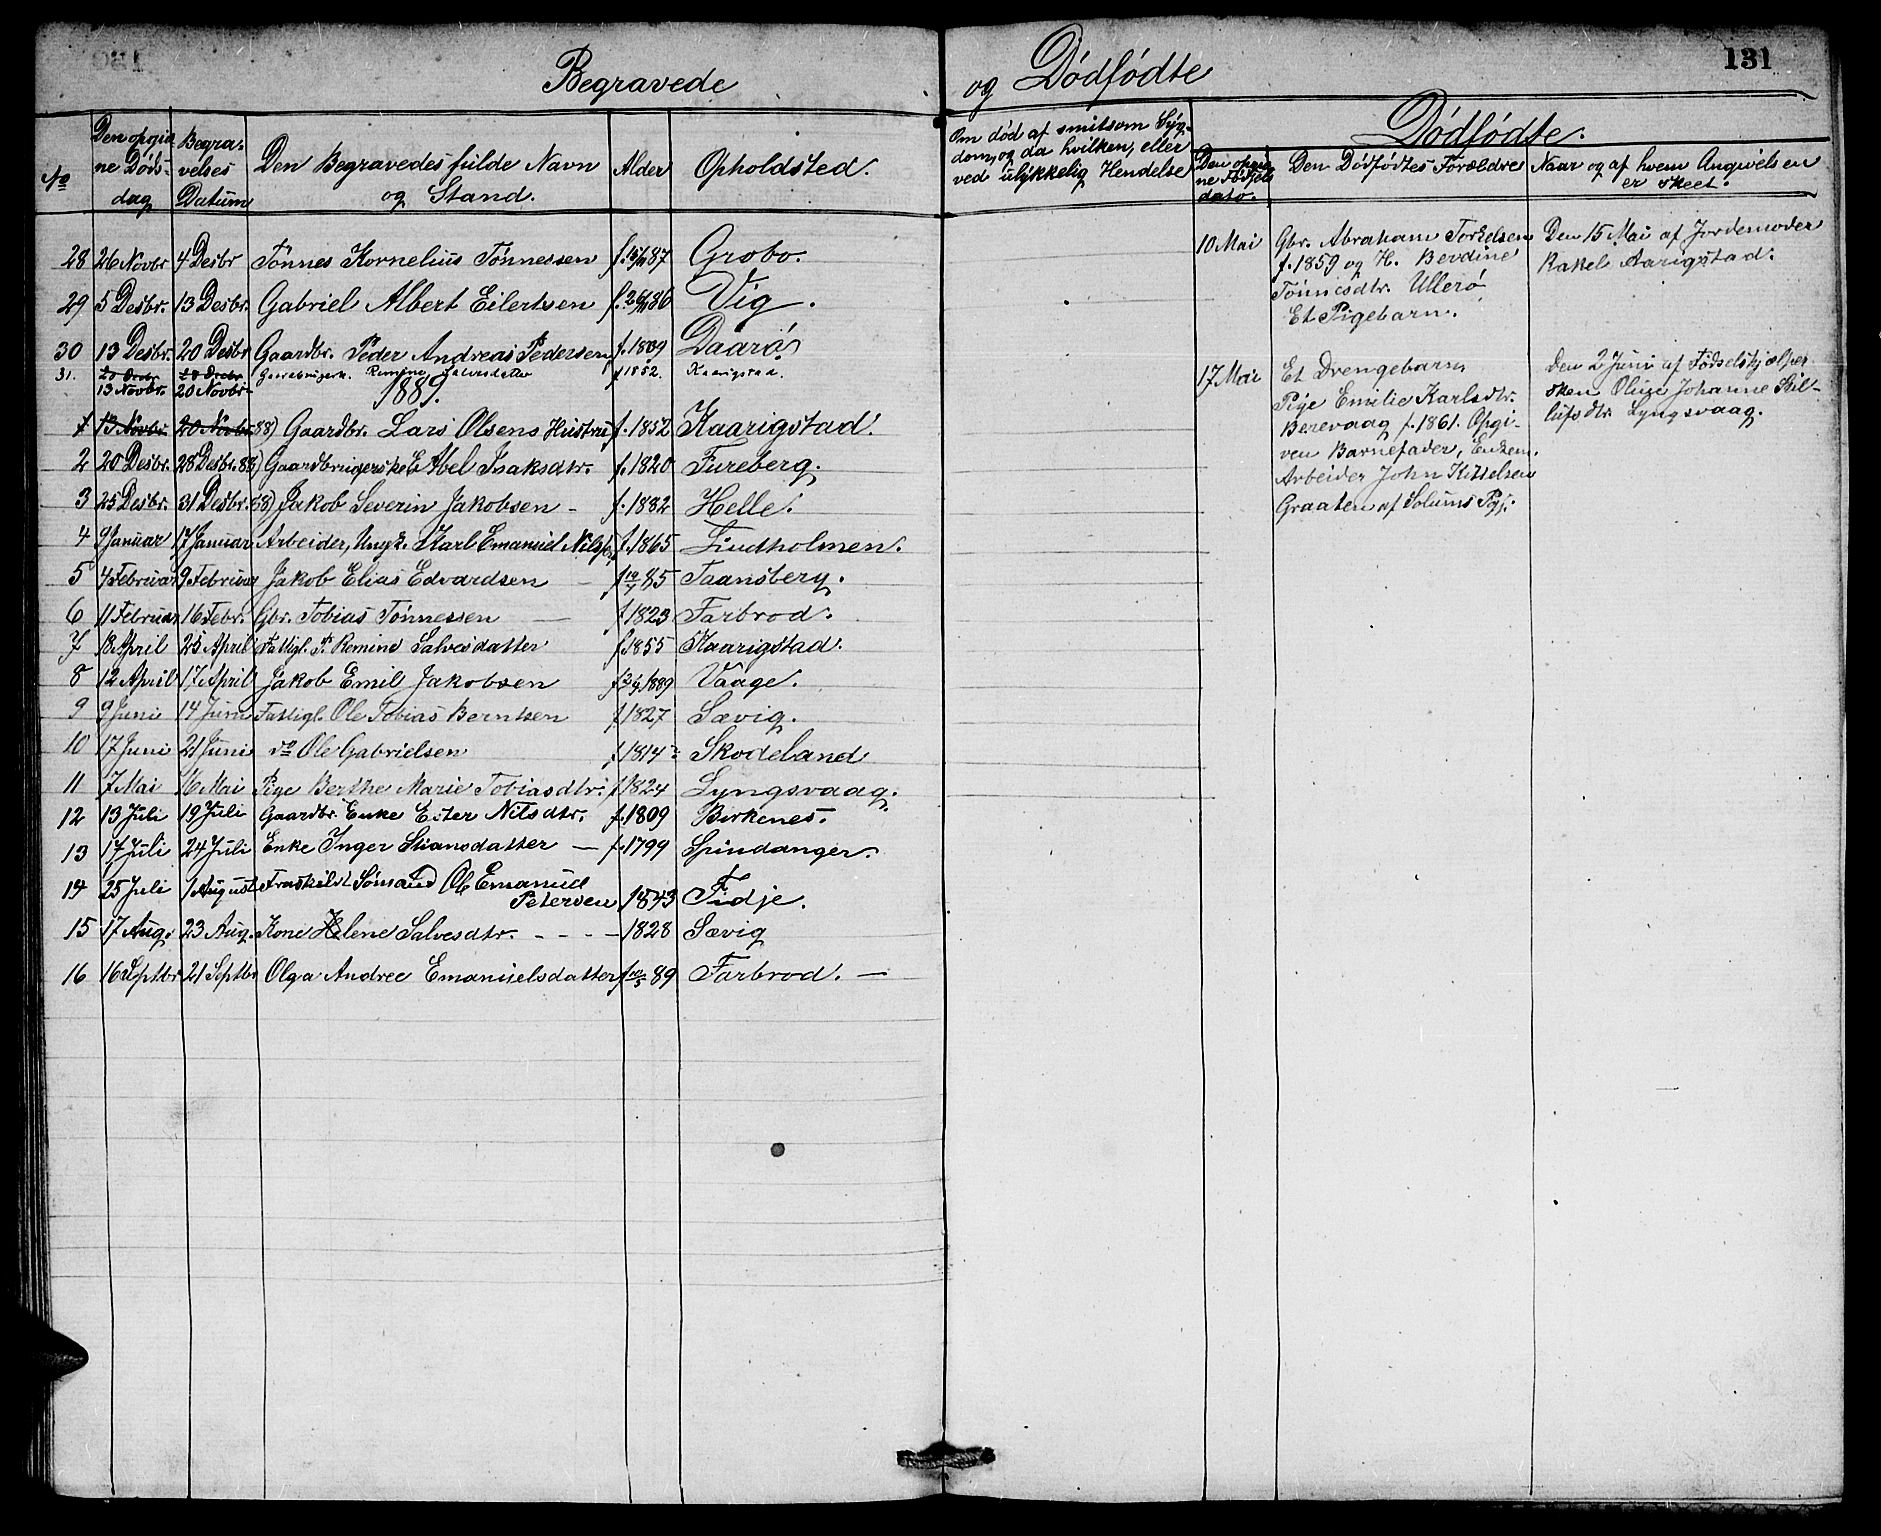 Begravede og Dødfødte 131
No Den opgivne Dødsdag Begravelses Datum Den Begravedes fulde Navn og Stand. Alder Opholdsted. Om død af smitsom Sygdom, og da hvilken, eller ved ulykkelig Hendelse
28 26 Novbr 4 Desbr Tønnes Kornelius Tønnessen f. 87 Grobo.
29 5 Desbr. 13 Desbr. Gabriel Albert Eilertsen f. 86 Vig.
30 13 Desbr. 20 Desbr Gaardbr. Peder Andreas Pedersen f. 1809 Daarø
31. f 1852. Kaarigstad.
13 Novbr. 20 Novbr. 1889.
1 13 Novbr. 20 Novbr. 88) Gaardbr. Lars Olsens Hustru f. 1852 Kaarigstad.
2 20 Desbr. 28 Desbr. 88) Gaardbrugerske E Abel Isaksdtr. f. 1820 Fureberg.
3 25 Desbr. 31 Desbr. 88) Jakob Severin Jakobsen - f. 1882 Helle.
4 9 Januar 17 Januar Arbeider, Ungk. Karl Emanuel Nilsen f. 1865 Lindholmen.
5 4 Februar 9 Februar Jakob Elias Edvardsen - f 85 Taansberg.
6 11 Februar 16 Febr. Gbr. Tobias Tønnessen — f 1823 Farbrod.
7 18 April 25 April Fattigl. P. Remine Salvesdatter f 1855 Kaarigstad.
8 12 April 17 April Jakob Emil Jakobsen f 1889 Vaage.
9 9 Juni 14 Juni Fattigl. Ole Tobias Berntsen f. 1827 Sævig.
10 17 Juni 21 Juni do Ole Gabrielsen f 1814 Skodeland
11 7 Mai 16 Mai Pige Berthe Marie Tobiasdtr. f 1824 Lyngsvaag.
12 13 Juli 19 Juli Gaardbr. Enke Ester Nilsdtr. f. 1809 Birkenes.
13 17 Juli 24 Juli Enke Inger Stiansdatter — f. 1799 Spindanger.
14 25 Juli 1 August Fraskildt Sømand Ole Emanuel
Petersen 1843 Fidje.
15 17 Aug. 23 Aug. Kone Helene Salvesdtr. - - - - 1828 Sævig
16 16 Septbr 21 Septbr Olga Andree Emanuelsdatter f 89 Farbrod. —
Dødfødte.
Den opgivne Fødsels dato. Den Dødfødtes Forældre Naar og af hvem Angivelsen er skeet.
10 Mai Gbr. Abraham Torkelsen Den 15 Mai af Jordemoder
f. 1859 og H. Berdine Rakel Aarigstad.
Tønnesdtr. Ullerø
Et Pigebarn.
17 Mai Et Drengebarn, Den 2 Juni af Fødselshjælper-
Pige Emilie Karlsdtr. sken Oluse Johanne Stil-
Berevaag f. 1861. Opgi- lufsdtr. Lyngsvaag.
ven Barnefader, Enkem.
Arbeider John Kittelsen
Graaten af Solums Pgj.